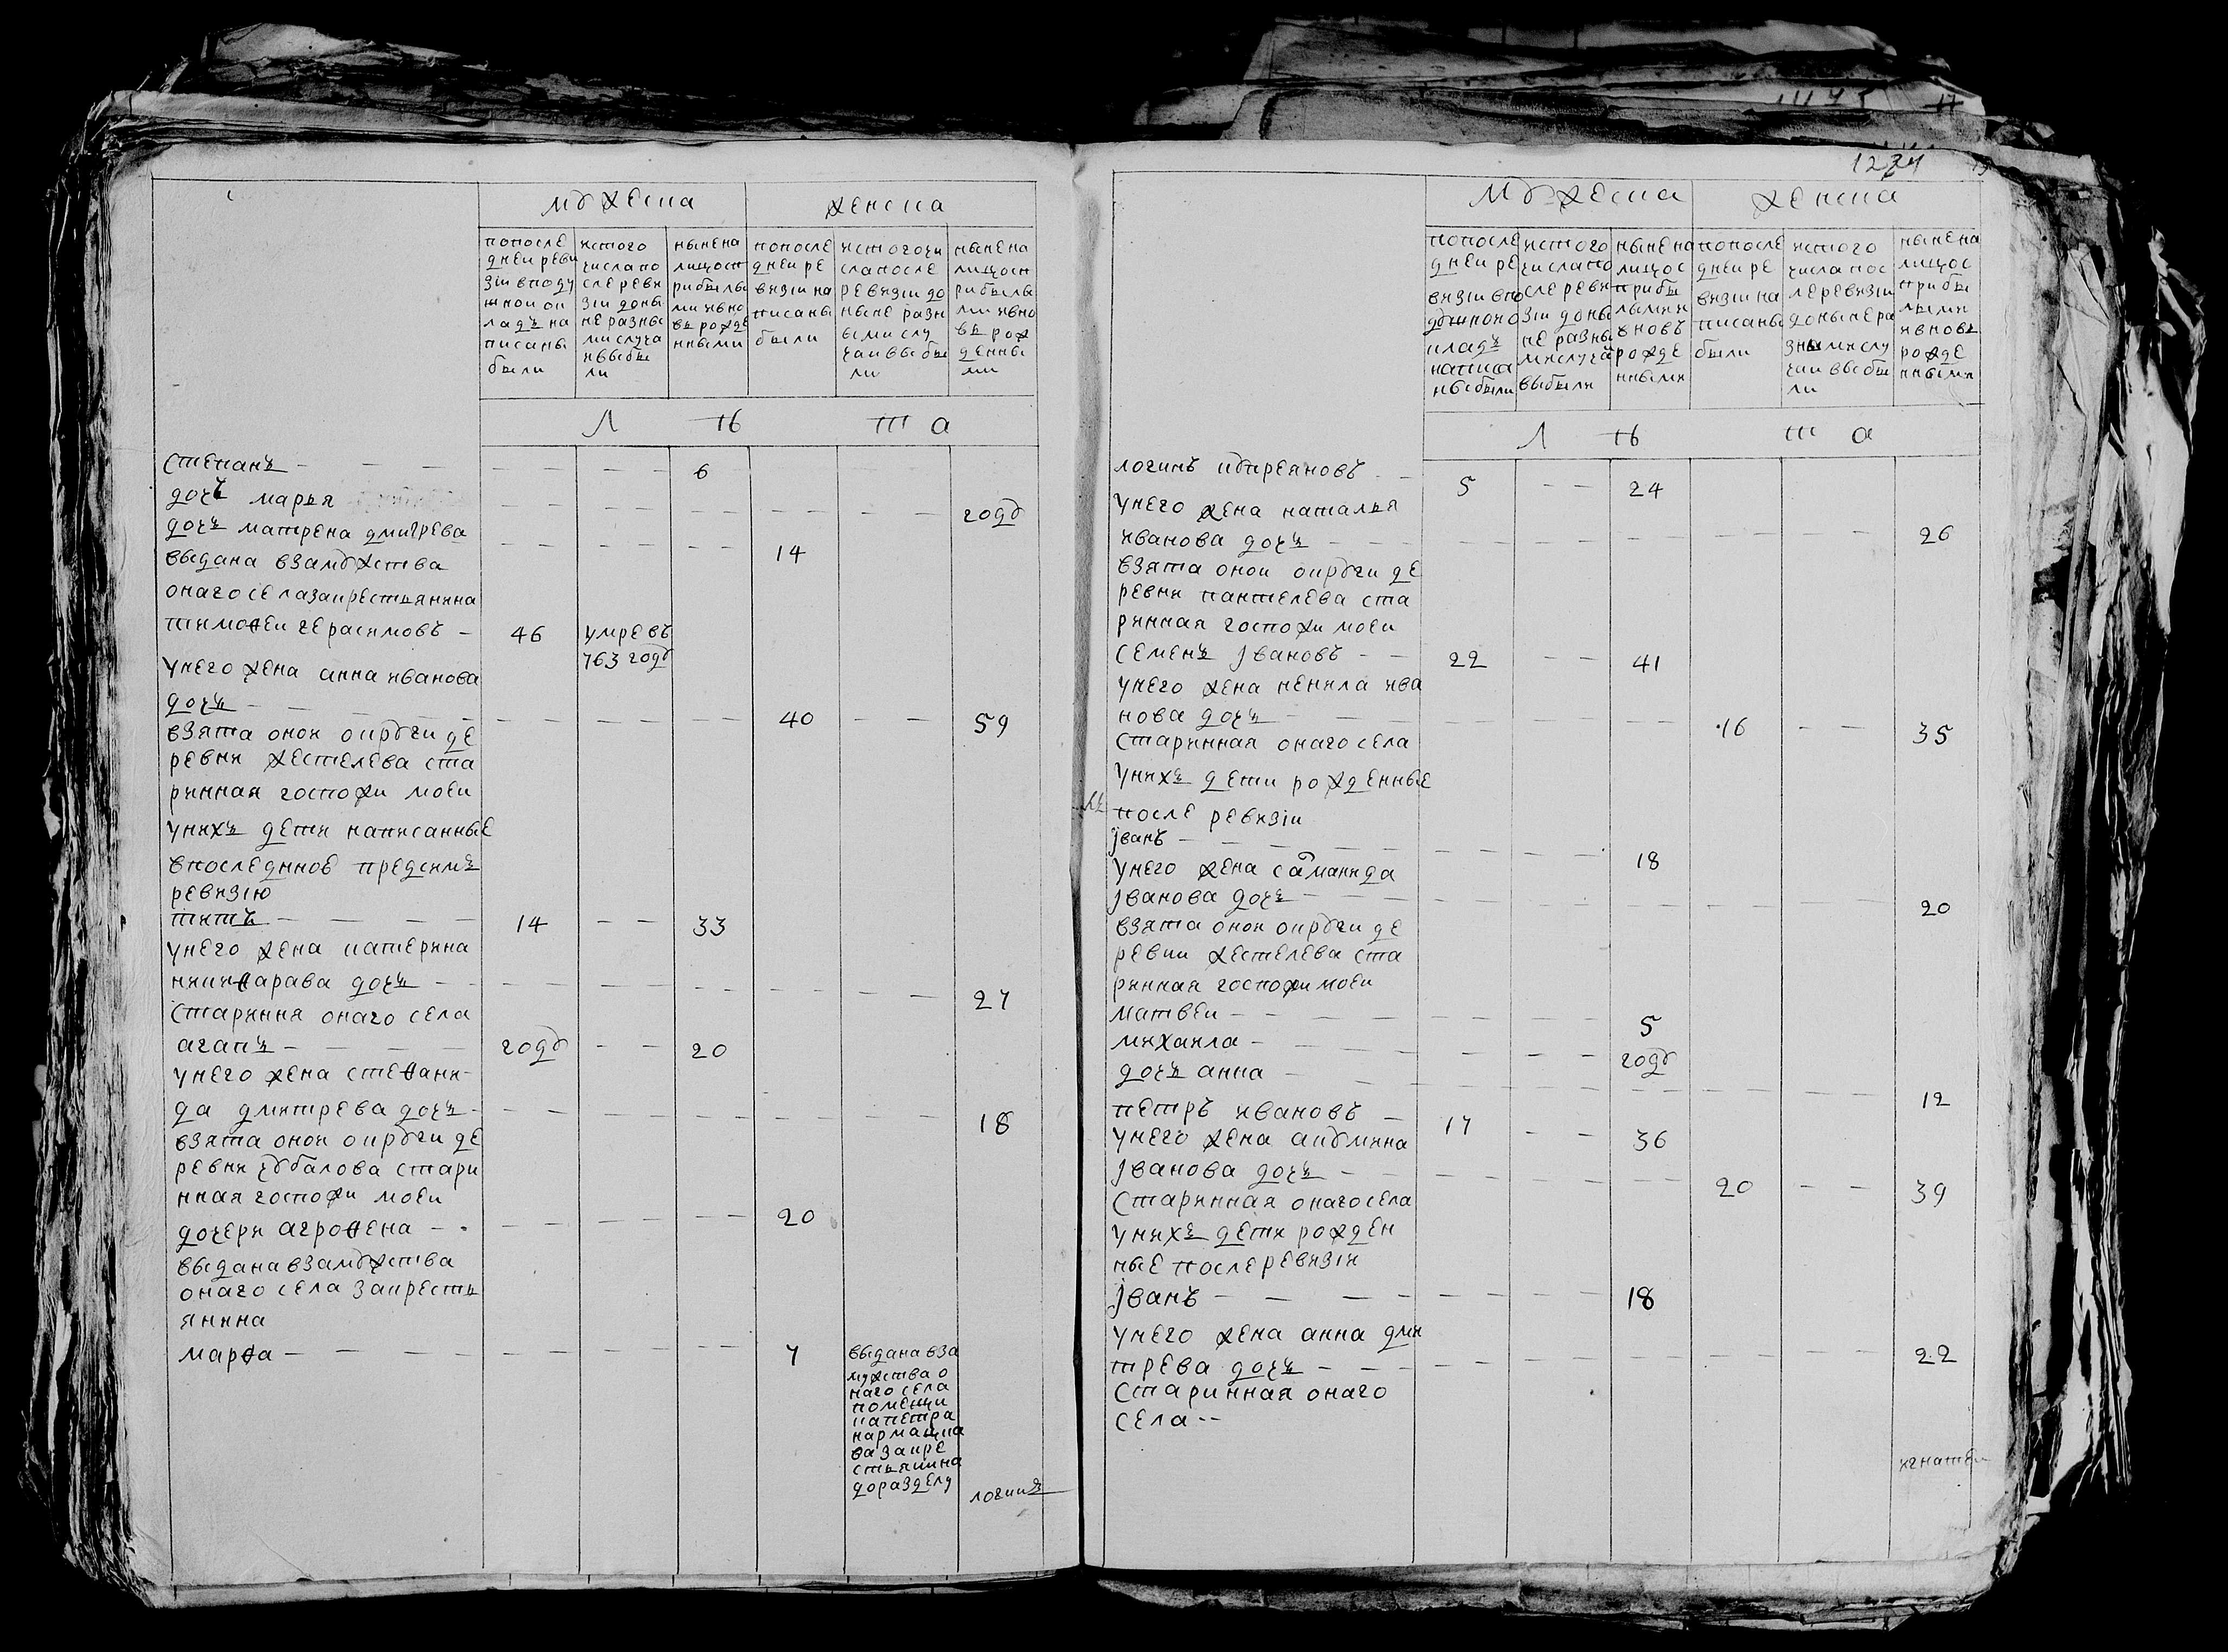 мужеска женска
попосле
дней реви
зiи вподу
шной ок
ладъ на
писаны
были
истого
числа по
сле реви
зiи доны
не разны
ми случа
и выбы
ли
ныне на
лицо сп
рибылы
ми ивно
вь рожде
нными
попосле
дней ре
визiи на
писаны
были
истого чи
сла после
ревизiи до
ныне разн
ыми слу
чаи выбы
ли
ныне на
лицо сп
рибылы
ми ивно
вь рож
денны
ми
л ѣ т а
степанъ 6
дочь марья году
дочь матрена дмитрева 14
выдана взамужства
онаго села закрестьянина
тимофеи герасимовъ 46 умре въ
763 году
унего жена анна иванова
дочь 40 59
взята оной округи де
ревни жестелева ста
ринная госпожи моеи
унихъ дети написанные
впоследннюю предсимъ
ревизiю
титъ 14 33
унего жена катерина
никифарава дочь 27
стариння онаго села
агапъ году 20
унего жена стефани-
да дмитрева дочь 18
взята оной округи де
ревни чубалова стари
нная госпожи моеи
дочери агрофена 20
выдана взамужства
онаго села закресть
янина
марфа 7 выдана вза
мужства о
наго села
помещи
ка петра
нармацка
ва закре
стьянина
доразделу
логинъ
1234
мужеска женска
попосле
дней ре
визiи впо
душномо
кладъ
написа
ны были
истого
числапо
сле реви
зiи доны
не разны
ми случаи
выбыли
ныне на
лицос
прибы
лыми и
вновь
рожде
нными
попосле
дней ре
визiи на
писаны
были
истого
числа пос
ле ревизiи
доныне ра
зными слу
чаи выбы
ли
ныне на
лицос
прибы
лыми
ивновь
рожде
нными
л ѣ т а
логинъ куприяновъ 5 24
унего жена наталья
иванова дочь 26
взята оной округи де
ревни пантелева ста
ринная госпожи моеи
семенъ Iвановъ 22 41
унего жена ненила ива
нова дочь 16 35
старинная онаго села
унихъ дети рожденные
после ревизiи
Iванъ 18
унего жена саманида
Iванова дочь 20
взята оной округи де
ревни жестелева ста
ринная госпожи моеи
матвеи 5
михаила году
дочь анна 12
петръ ивановъ 17 36
унего жена акулина
Iванова дочь 20 39
старинная онаго села
унихъ дети рожден
ные после ревизiи
Iванъ 18
унего жена анна дми
трева дочь 22
старинная онаго
села
игнатеи